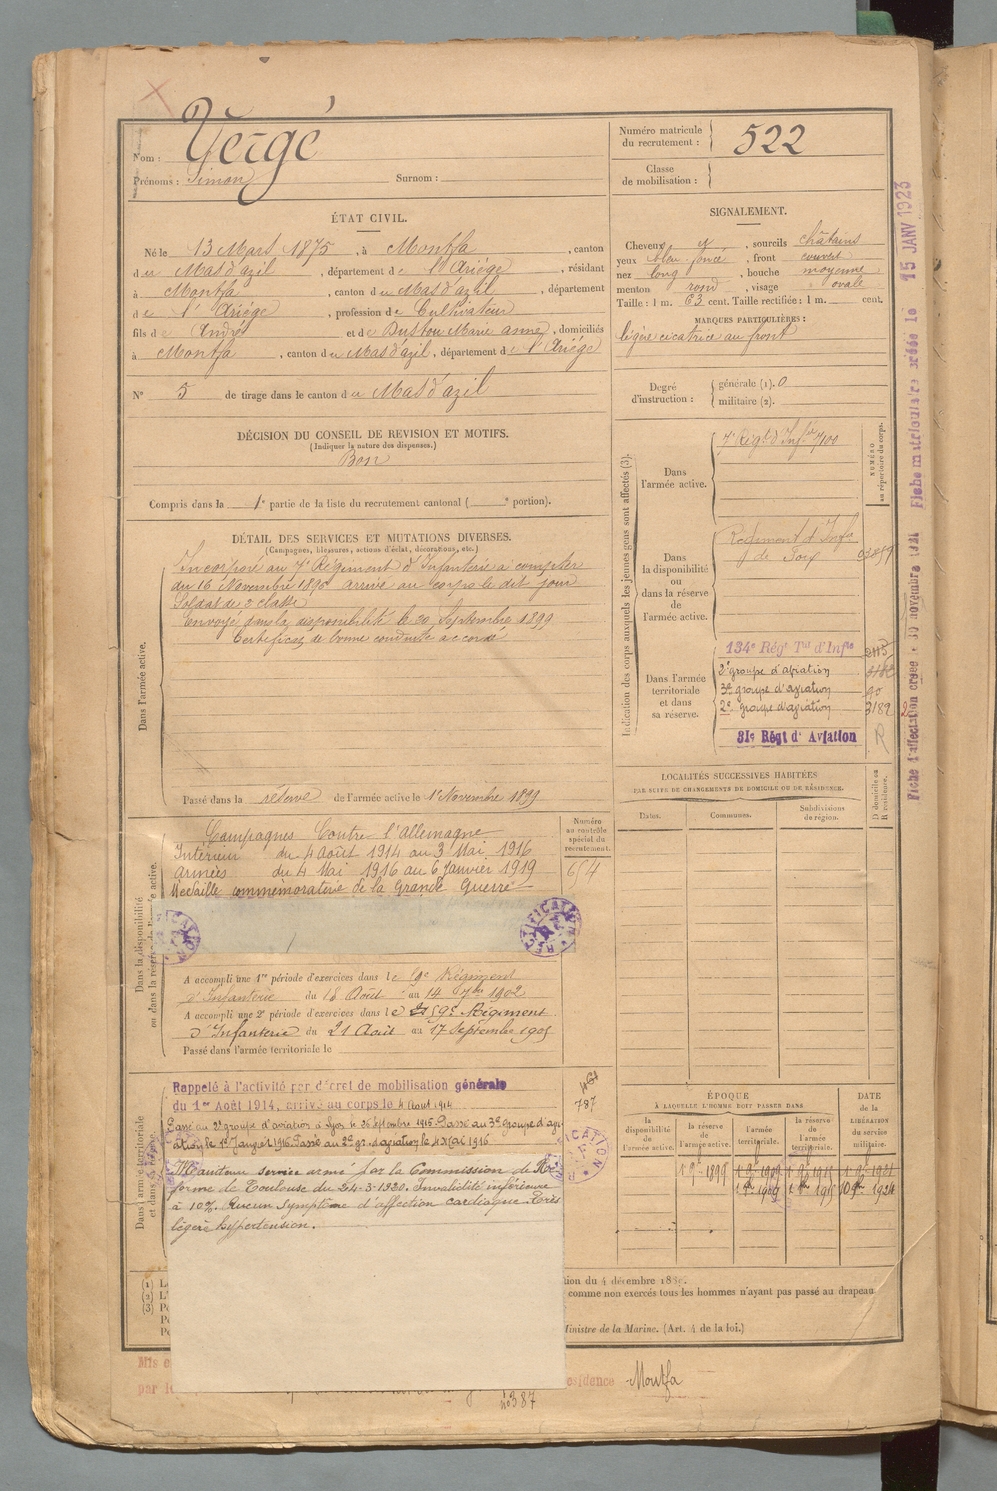 Nom : Vergé
Prénoms : Simon Surnom :
Numéro matricule du recrutement : 522
Classe de mobilisation :
ÉTAT CIVIL.
Né le 13 Mars 1875, à Montfa, canton
du Mas d'azil, département de l'Ariége, résidant
à Montfa, canton du Mas d'azil, département
de l'Ariége, profession de Cultivateur
fils de André et de Bustou Marie anne, domiciliés
à Montfa, canton du Mas d'azil, département de l'Ariége
N° 5 de tirage dans le canton du Mas d'azil
SIGNALEMENT.
Cheveux et, sourcils châtains
yeux bleu foncé, front couvert
nez long, bouche moyenne
menton rond, visage ovale
Taille : 1 m. 63 cent. Taille rectifiée : 1 m. cent.
MARQUES PARTICULIÈRES :
légère cicatrice au front
Degré d'instruction : générale (1). 0
militaire (2).
DÉCISION DU CONSEIL DE REVISION ET MOTIFS.
(Indiquer la nature des dispenses.)
Bon
Compris dans la 1e partie de la liste du recrutement cantonal ( e portion).
DÉTAIL DES SERVICES ET MUTATIONS DIVERSES.
(Campagnes, blessures, actions d'éclat, décorations, etc.)
Dans l'armée active.
Incorporé au 7e Régiment d'Infanterie à compter
du 16 Novembre 1896 arrivé au corps le dit jour
Soldat de 2e classe
Envoyé dans la disponibilité le 20 Septembre 1899
Certificat de bonne conduite accordé
Passé dans la réserve de l'armée active le 1er Novembre 1899
Indication des corps auxquels les jeunes gens sont affectés (3).
NUMÉRO au répertoire du corps.
Dans l'armée active.
7e Régt d'Infie
Dans la disponibilité ou dans la réserve de l'armée active.
Régiment d'Infie
de Foix
Dans l'armée territoriale et dans sa réserve.
134e Régt Tal d'Infie
2e groupe d'aviation
3e groupe d'aviation 90
2e groupe d'aviation 3182
31e Régt d'Aviation R
LOCALITÉS SUCCESSIVES HABITÉES
PAR SUITE DE CHANGEMENTS DE DOMICILE OU DE RÉSIDENCE.
Dates. Communes. Subdivisions de région. D domicile ou R résidence.
Dans la disponibilité ou dans la réserve de l'armée active.
Campagnes Contre l'Allemagne
Intérieur du 4 Août 1914 au 3 Mai 1916
armées du 4 Mai 1916 au 6 Janvier 1919
Médaille commémorative de la Grande Guerre
Numéro au contrôle spécial du recrutement.
654
RECTIFICATION
RECTIFICATION
A accompli une 1re période d'exercices dans le Régiment
d'Infanterie du 18 Août au 14 7bre 1902
A accompli une 2e période d'exercices dans le 59e Régiment
d'Infanterie du 21 Août au 17 Septembre 1905
Passé dans l'armée territoriale le
Dans l'armée territoriale et dans sa réserve
Rappelé à l'activité par décret de mobilisation générale
du 1er Août 1914, arrivé au corps le 4 aout 1914
787
Passé au 2e groupe d'aviation à Lyon le 26 septembre 1915 Passé au 3e groupe d'avi-
ation le 1er Janvier 1916 Passé au 2e gr. d'aviation le 4 Mai 1916
Maintenu service armé par la Commission de Ré-
forme de Toulouse du 24-3-1920. Invalidité inférieure
à 10%. Aucun symptôme d'affection cardiaque. Très
légère hypertension.
RECTIFICATION
ÉPOQUE
À LAQUELLE L'HOMME DOIT PASSER DANS
la disponibilité de l'armée active. la réserve de l'armée active. l'armée territoriale. la réserve de l'armée territoriale. DATE de la LIBÉRATION du service militaire.
1 9bre 1899 1 9bre 1909 1 9bre 1915 1 9bre 1921
1 8bre 1909
tion du 4 décembre 188
comme non exercés tous les hommes n'ayant pas passé au drapeau
Ministre de la Marine. (Art. 4 de la loi.)
Mis e
par l
résidence Montfa
Fiche d'affectation créée le 30 novembre
Fiche matriculaire créée le 15 JANV 1923